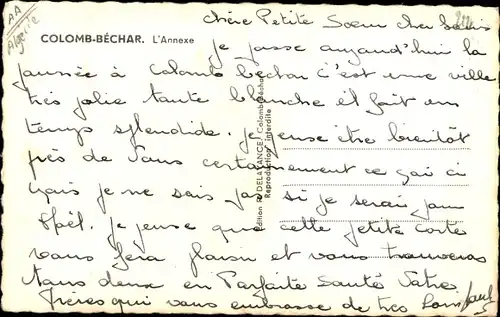 AA
Algérie
COLOMB-BÉCHAR. L'Annexe
chère Petite Soeur cher
je passe aujourd'hui la
journée à Colomb bechar c'est une ville
très jolie toute blanche il fait un
temps splendide. je pense être bientôt
près de vous certainement
mais je ne sais pas si je serai pour
Noël. je pense que cette petite carte
vous fera plaisir et vous trouveras
tous deux en Parfaite Santé Votre
frère qui vous embrasse de très loin Paul
Edition R. DELATANCE, Colomb-Béchar
Reproduction interdite